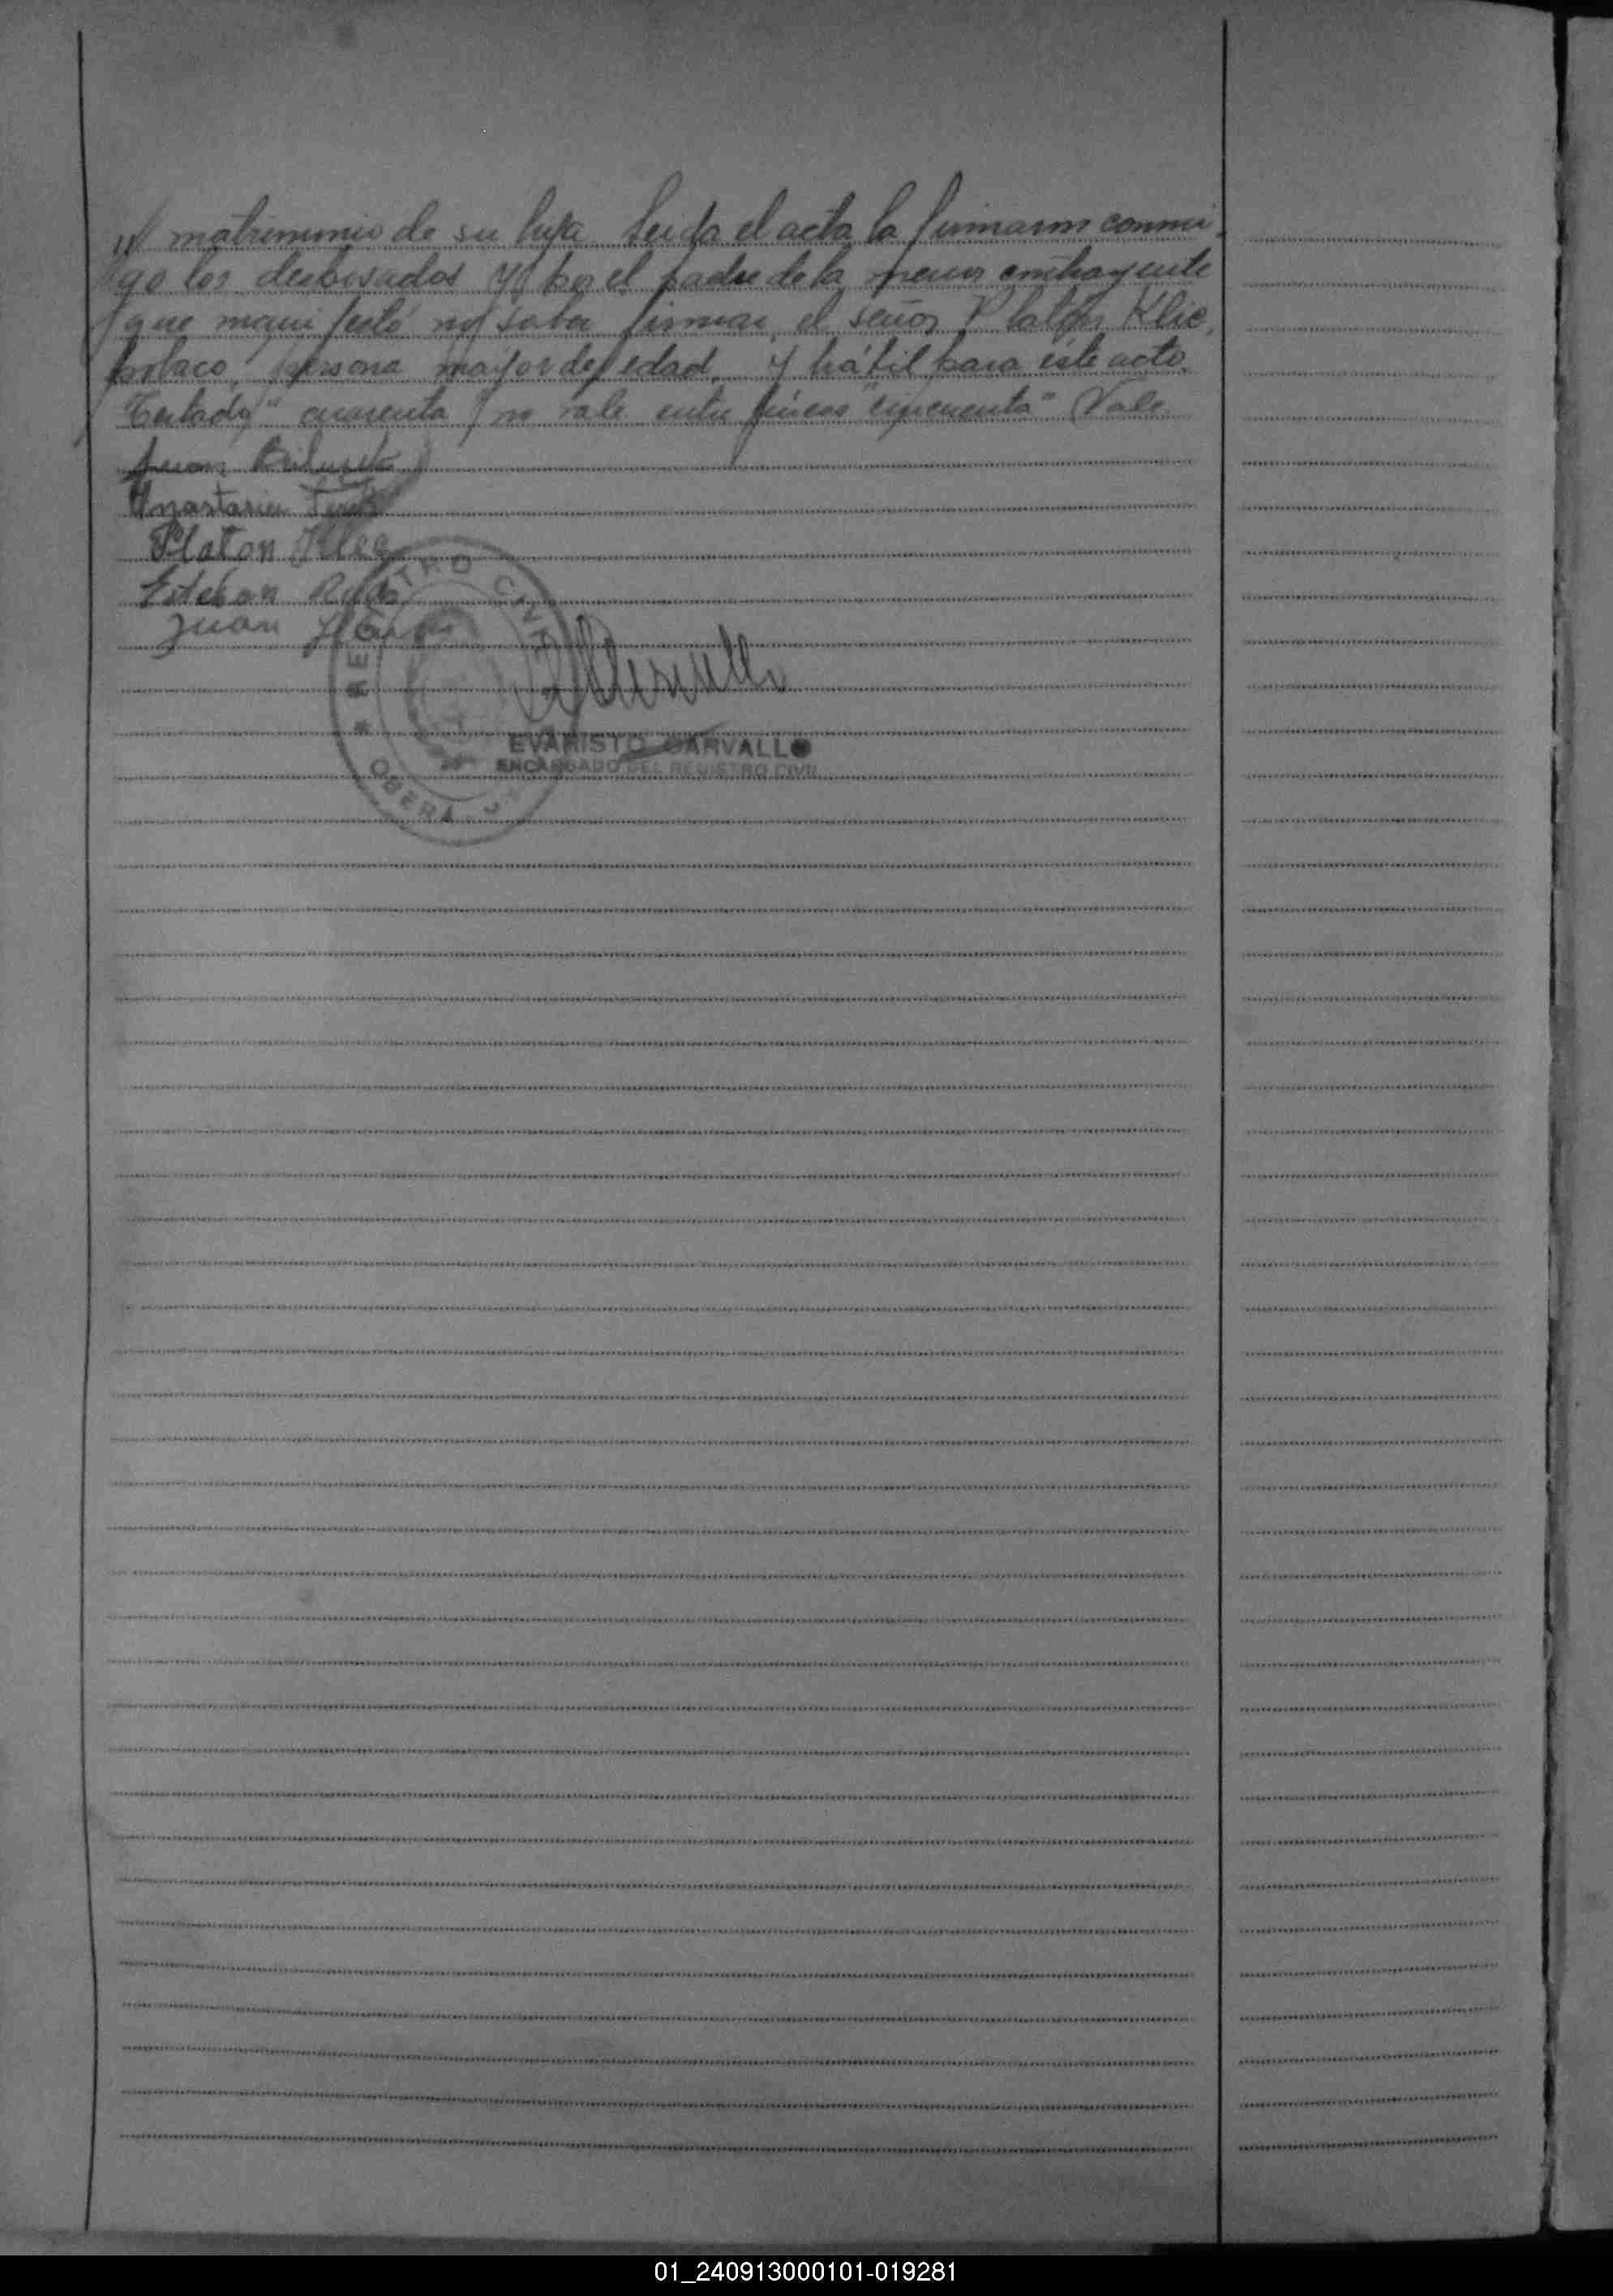 matrimonio de su hija. Leida el acta la firmaron conmi-
go los desposados y por el padre de la menor contrayente
que manifestó no saber firmar, el señor Platón Klie,
polaco, persona mayor de edad, y hábil para éste acto.
Testado "cuarenta" no vale entre líneas "cincuenta" Vale
Juan
Anastasia
Platon
Esteban
Juan
REGISTRO CIVIL
OBERA
EVARISTO CARVALLO
ENCARGADO DEL REGISTRO CIVIL
01_240913000101-019281